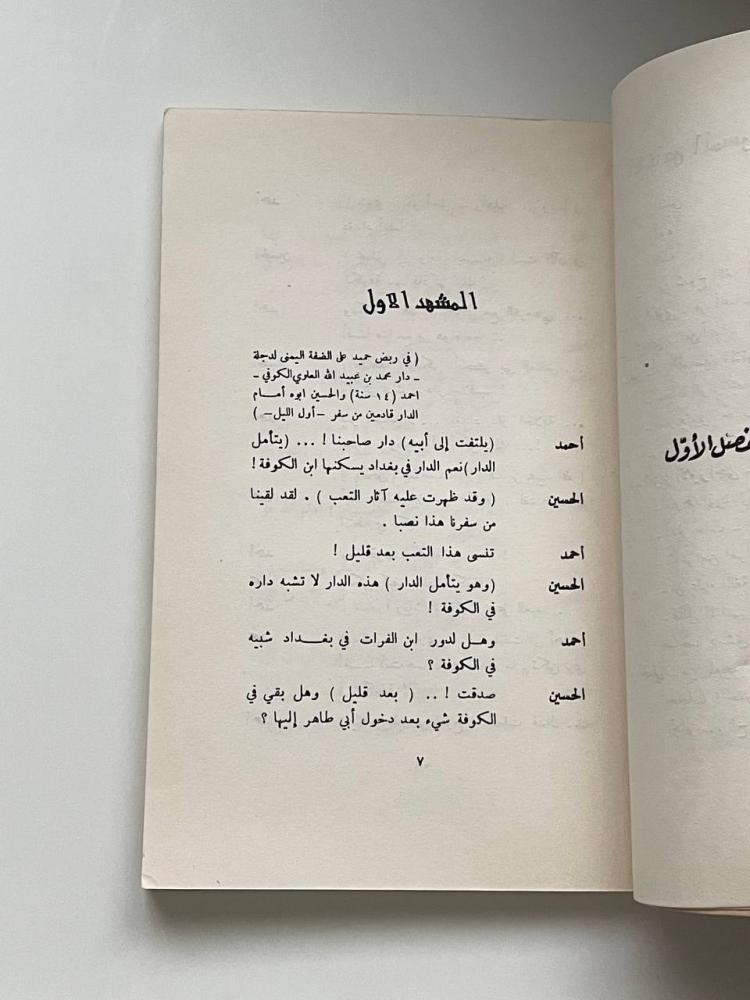 المشهد الاول
( في ربض حميد على الضفة اليمنى لدجلة
ـ دار محمد بن عبيد الله العلوي الكوفي ـ
احمد (١٤ سنة) والحسين ابوه أمام
الدار قادمين من سفر –أول الليل– )
أحمد (يلتفت إلى أبيه) دار صاحبنا ! ... (يتأمل
الدار) نعم الدار في بغداد يسكنها ابن الكوفة !
الحسين ( وقد ظهرت عليه آثار التعب ) . لقد لقينا
من سفرنا هذا نصبا .
أحمد تنسى هذا التعب بعد قليل !
الحسين (وهو يتأمل الدار ) هذه الدار لا تشبه داره
في الكوفة !
أحمد وهل لدور ابن الفرات في بغداد شبيه
في الكوفة ؟
الحسين صدقت ! .. ( بعد قليل ) وهل بقي في
الكوفة شيء بعد دخول أبي طاهر إليها ؟
٧
الأوّل